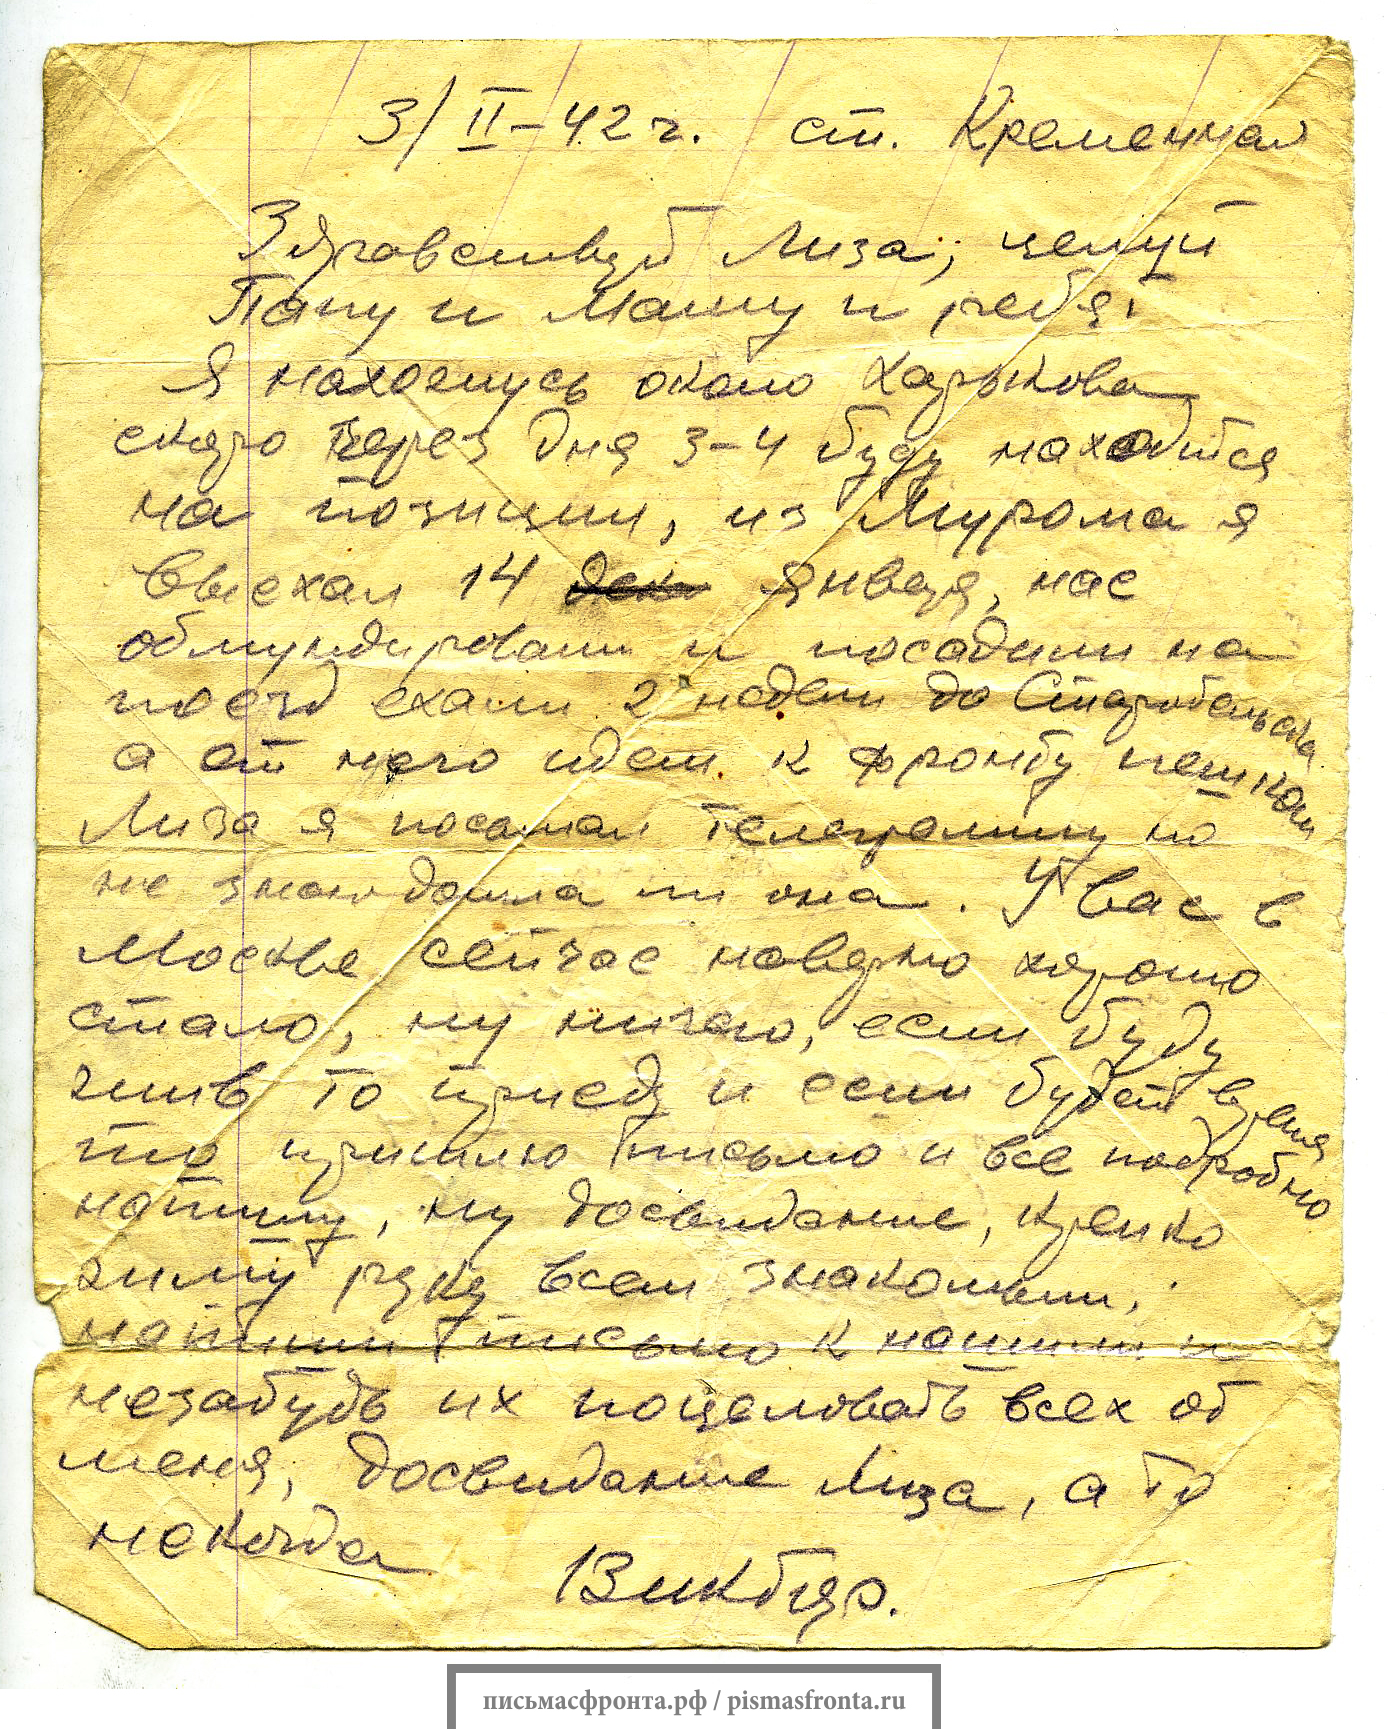 3/II-42 г. ст. Кременная
Здравствуй Лиза, целуй
Папу и Машу и ребят
Я нахожусь около Харькова
скоро через дня 3-4 буду находится
на позиции, из Мурома я
выехал 14 января, нас
обмундировали и посадили на
поезд ехали 2 недели до Старобельска
а от него идем к фронту пешком
Лиза я посылал телеграмму но
не знаю дошла ли она. У вас в
Москве сейчас наверно хорошо
стало, ну ничего, если буду
жив то приеду и если будет время
то пришлю письмо и все подробно
напишу, ну досвидание, крепко
жму руку всем знакомым,
напиши письмо к нашим и
незабудь их поцеловать всех от
меня, досвидание Лиза, а то
некогда
Виктор.
письмасфронта.рф / pismasfronta.ru